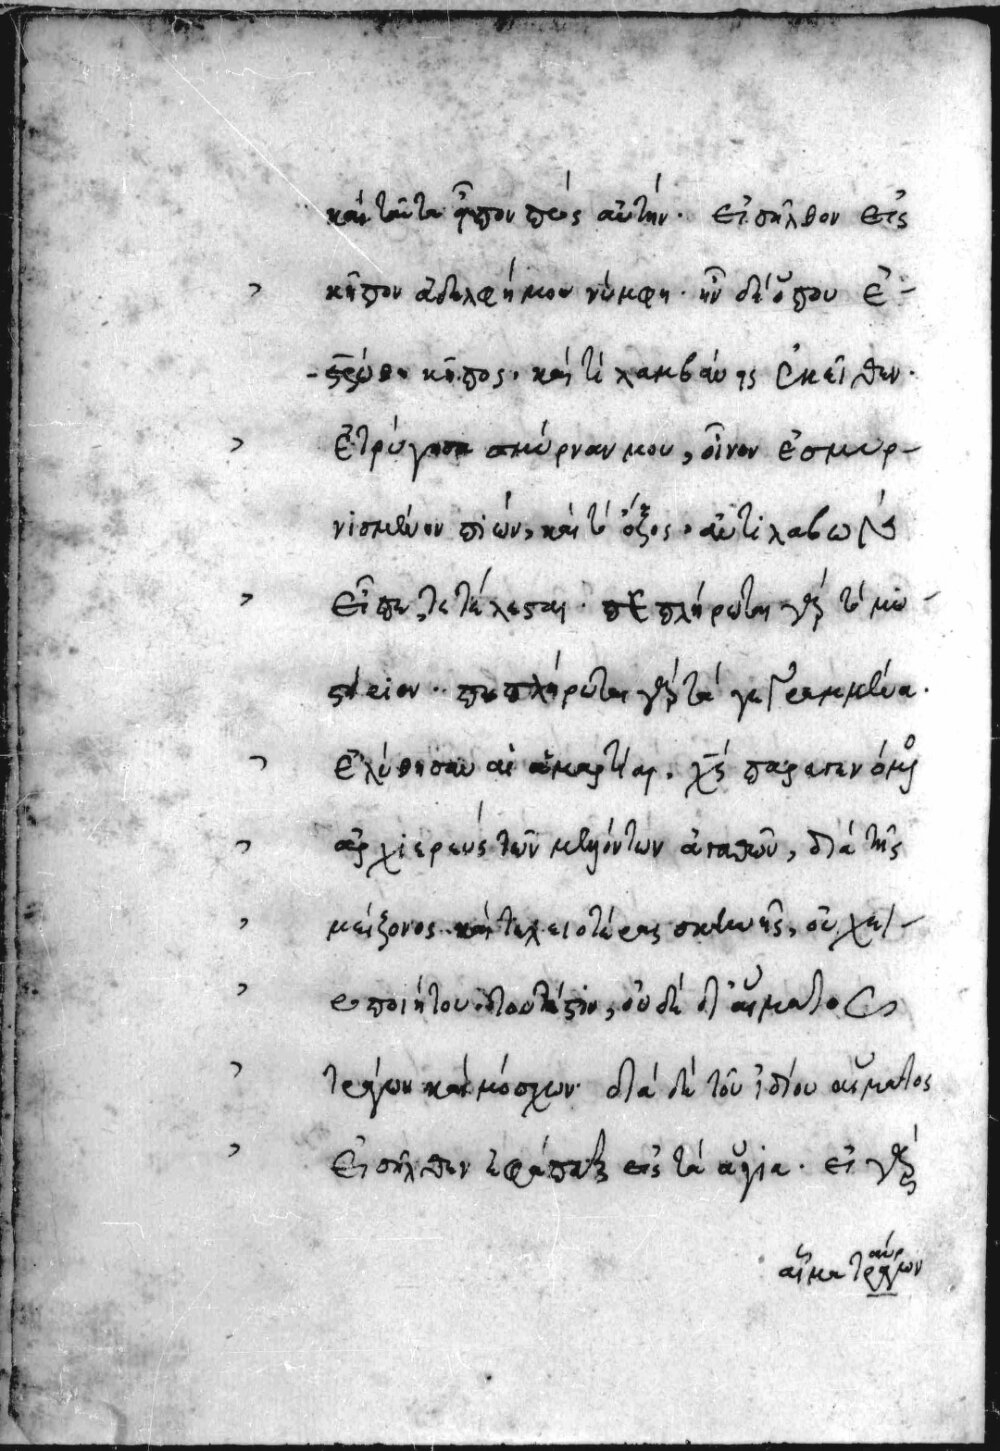 καὶ ταῦτα εἶπον πρὸς αὐτήν. εἰσῆλθον εἰς
κῆπον ἀδελφή μου νύμφη. ἦν δὲ ὅπου ἐ-
-στρώθη κῆπος. καὶ τί λαμβάνης ἐκεῖθεν.
ἐτρύγησα σμύρναν μου, οἶνον ἐσμυρ-
νισμένον πιών, καὶ τὸ ὄξος. λαβων
εἶπε, τετέλεσται. πεπλήρωται γὰρ τὸ μυ-
στήριον. πεπλήρωται γὰρ τὰ γεγραμμένα.
ἐλύθησαν αἱ ἁμαρτίαι. χς παραγενόμενος
ἀρχιερεὺς τῶν μελλόντων ἀγαθῶν, διὰ τῆς
μείζονος καὶ τελειοτέρας σκηνῆς, οὐ χει-
ροποιήτου. τουτέστιν, οὐδὲ δι' αἵματος
τράγων καὶ μόσχων. διὰ δὲ τοῦ ἰδίου αἵματος
εἰσῆλθεν ἐφάπαξ εἰς τὰ ἅγια. εἰ γὰρ
αἷμα τράγων